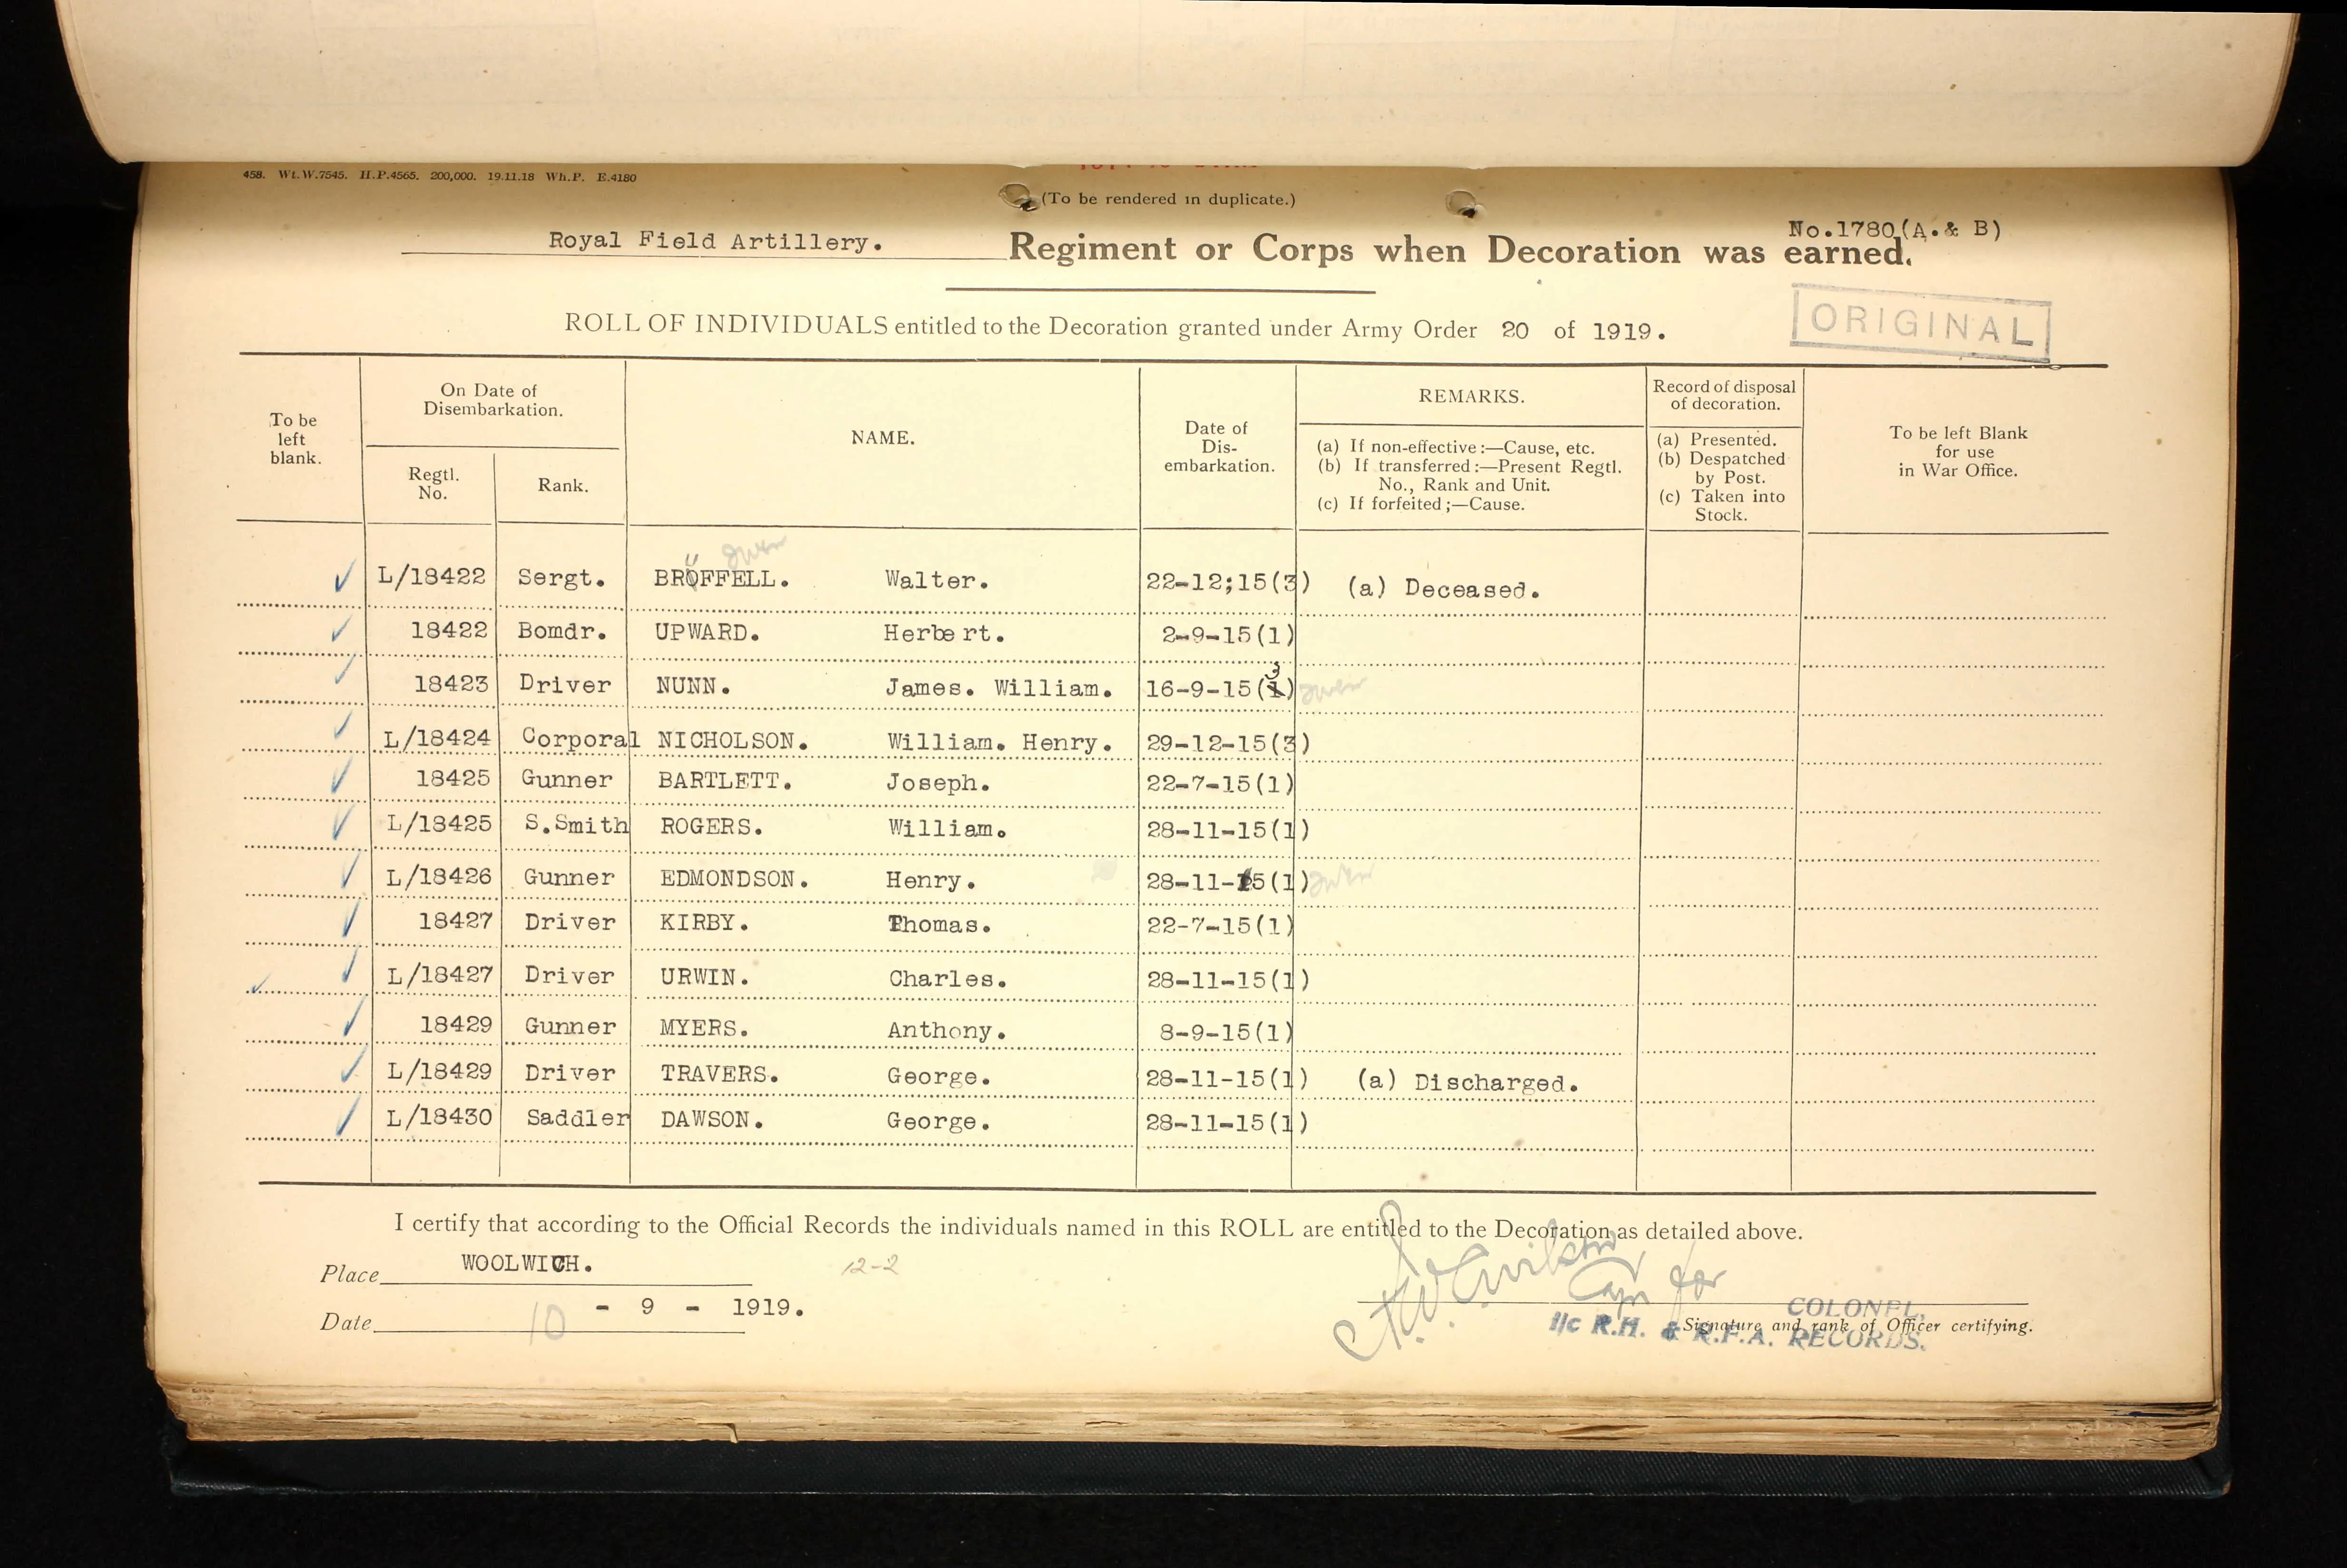 458. Wt.W.7545. H.P.4565. 200,000. 19.11.18 Wh.P. E.4180
(To be rendered in duplicate.)
No.1780(A.& B)
Royal Field Artillery. Regiment or Corps when Decoration was earned.
ROLL OF INDIVIDUALS entitled to the Decoration granted under Army Order 20 of 1919.
ORIGINAL
To be left blank.
On Date of Disembarkation.
Regtl. No.
Rank.
NAME.
Date of Dis-embarkation.
REMARKS.
(a) If non-effective:—Cause, etc.
(b) If transferred:—Present Regtl. No., Rank and Unit.
(c) If forfeited;—Cause.
Record of disposal of decoration.
(a) Presented.
(b) Despatched by Post.
(c) Taken into Stock.
To be left Blank for use in War Office.
L/18422 Sergt. BRUFFELL. Walter. 22-12;15(3) (a) Deceased.
18422 Bomdr. UPWARD. Herbert. 2-9-15(1)
18423 Driver NUNN. James. William. 16-9-15(3)
L/18424 Corporal NICHOLSON. William. Henry. 29-12-15(3)
18425 Gunner BARTLETT. Joseph. 22-7-15(1)
L/18425 S.Smith ROGERS. William. 28-11-15(1)
L/18426 Gunner EDMONDSON. Henry. 28-11-15(1)
18427 Driver KIRBY. Thomas. 22-7-15(1)
L/18427 Driver URWIN. Charles. 28-11-15(1)
18429 Gunner MYERS. Anthony. 8-9-15(1)
L/18429 Driver TRAVERS. George. 28-11-15(1) (a) Discharged.
L/18430 Saddler DAWSON. George. 28-11-15(1)
I certify that according to the Official Records the individuals named in this ROLL are entitled to the Decoration as detailed above.
Place WOOLWICH.
12-2
Date 10 - 9 - 1919.
Capt for
COLONEL.
Signature and rank of Officer certifying.
I/c R.H. & R.F.A. RECORDS.